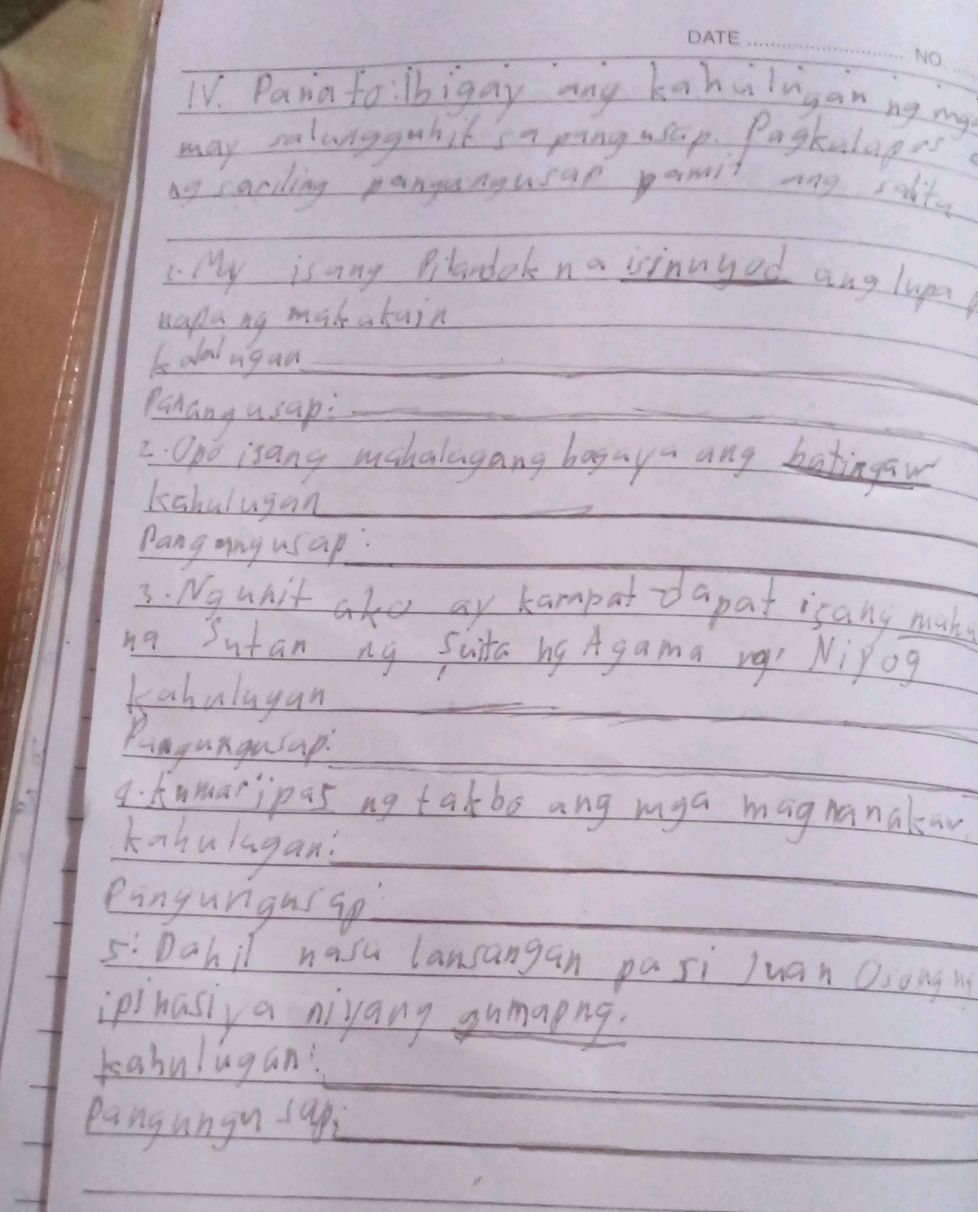 DATE ........................ NO.
IV. Panato: Ibigay ang kahulugan ng mga
may salungguhit sa pangusap. Pagkatapos
ng sariling pangungusap gamit ang salita
1. My isang Pilandok na isinuyod ang lupa
kahulugan
Panangusap:
2. Opo isang mahalagang bagaya ang batingaw
kahulugan
Pangungusap:
3. Ngunit ako ay karapat-dapat isang
na Sutan ng Agama ng Niyog
kahulugan
Pangungusap:
4. kumaripas ng takbo ang mga magnanakaw
kahulugan:
Pangungusap:
5. Dahil nasa lansangan pa si Juan
ipinasiya niyang gumapng.
kahulugan:
Pangungusap: